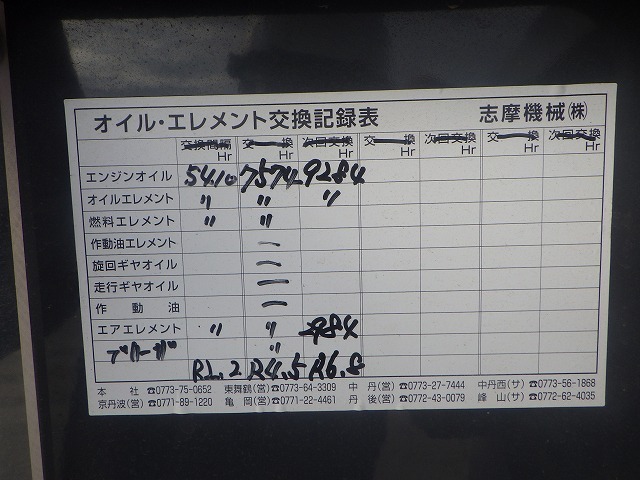 オイル・エレメント交換記録表 志摩機械㈱
交換間隔 交 換 次回交換 交 換 次回交換 交 換 次回交換
Hr Hr Hr Hr Hr Hr Hr
エンジンオイル 5410 7574 9284
オイルエレメント 〃 〃 〃
燃料エレメント 〃 〃
作動油エレメント ー
旋回ギヤオイル ー
走行ギヤオイル ー
作動油 ー
エアエレメント 〃 〃 984
ブリーザ 〃
R2.2 R4.5 R6.8
本社☎0773-75-0652 東舞鶴(営)☎0773-64-3309 中丹(営)☎0773-27-7444 中丹西(サ)☎0773-56-1868
京丹波(営)☎0771-89-1220 亀岡(営)☎0771-22-4461 丹後(営)☎0772-43-0079 峰山(サ)☎0772-62-4035